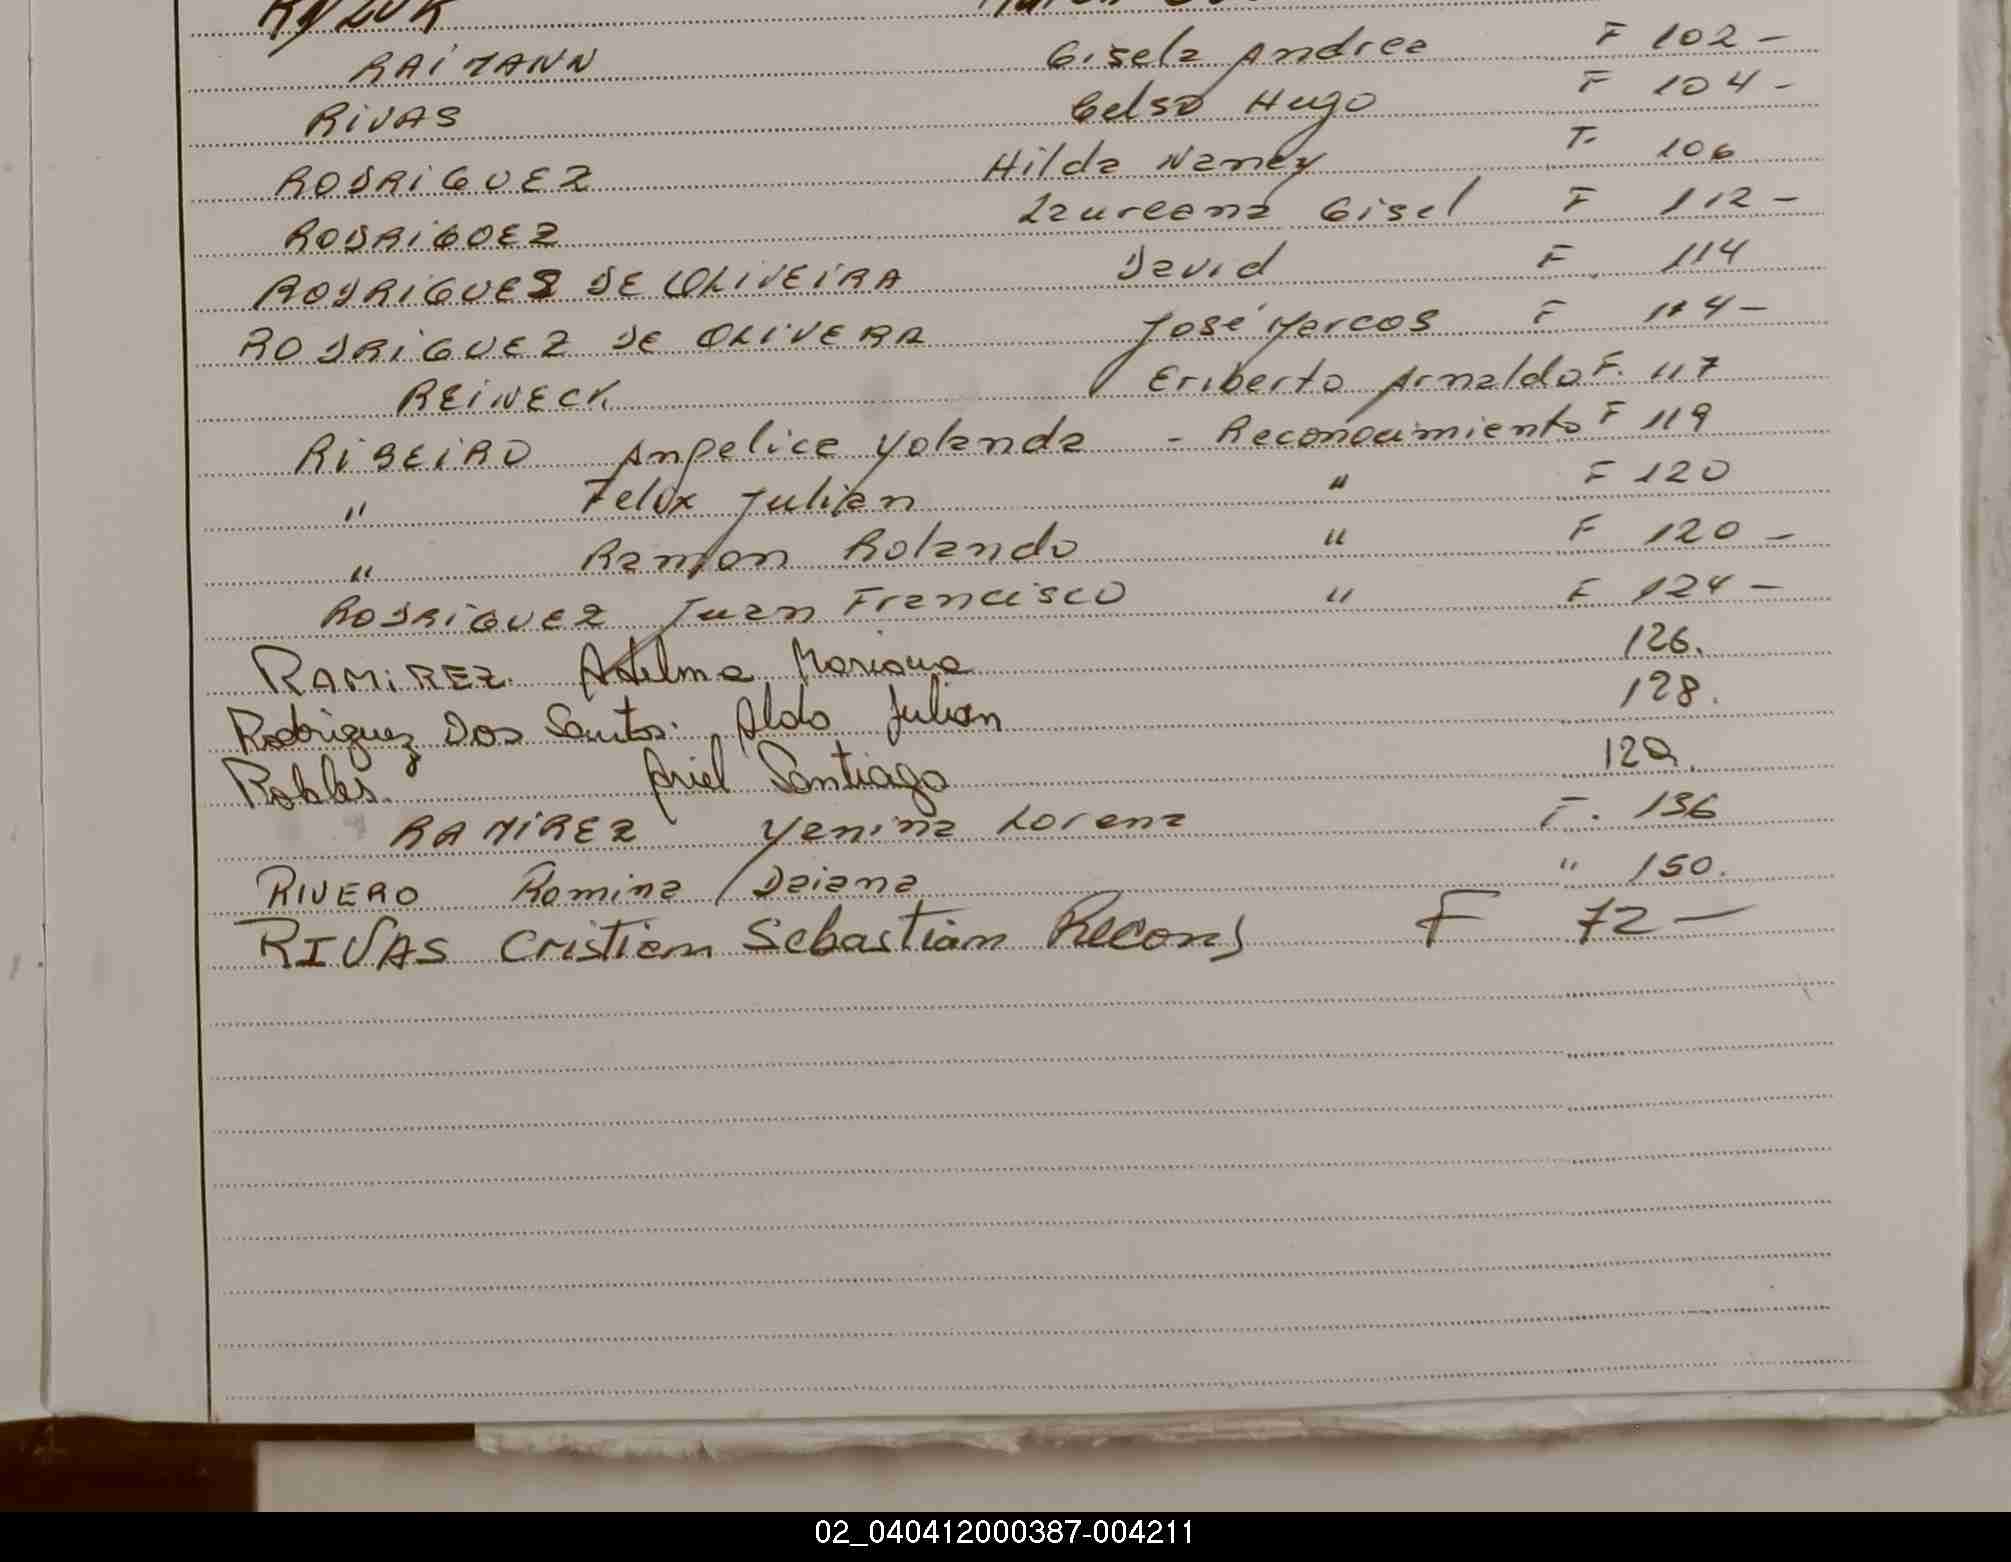 RAIMANN Gisela Andrea F 102 -
RIVAS Celso Hugo F 104 -
RODRIGUEZ Hilda Nancy F. 106
RODRIGUEZ Laureana Gisel F 112 -
RODRIGUES DE OLIVEIRA David F. 114
RODRIGUEZ DE OLIVERA José Marcos F 114 -
REINECK Eriberto Arnaldo F. 117
RIBEIRO Angelica Yolanda - Reconocimiento F 119
" Felix Julian " F 120
" Ramon Rolando " F 120 -
RODRIGUEZ Juan Francisco " F 124 -
RAMIREZ. Adelma Mariana 126.
Rodriguez Dos Santos. Aldo Julian 128.
Robles. Ariel Santiago 129.
RAMIREZ Yanina Lorena F. 136
RIVERO Romina Daiana " 150.
RIVAS Cristian Sebastian F 72 -
02_040412000387-004211